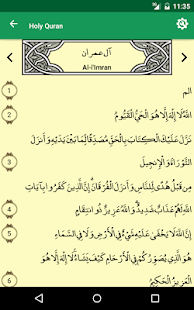 11:35
Holy Quran
آل عمران
Al-i'Imran
1
الم
2
اللَّهُ لَا إِلَٰهَ إِلَّا هُوَ الْحَيُّ الْقَيُّومُ
3
نَزَّلَ عَلَيْكَ الْكِتَابَ بِالْحَقِّ مُصَدِّقًا لِّمَا بَيْنَ يَدَيْهِ وَأَنزَلَ
التَّوْرَاةَ وَالْإِنجِيلَ
4
مِن قَبْلُ هُدًى لِّلنَّاسِ وَأَنزَلَ الْفُرْقَانَ إِنَّ الَّذِينَ كَفَرُوا بِآيَاتِ
اللَّهِ لَهُمْ عَذَابٌ شَدِيدٌ وَاللَّهُ عَزِيزٌ ذُو انتِقَامٍ
5
إِنَّ اللَّهَ لَا يَخْفَىٰ عَلَيْهِ شَيْءٌ فِي الْأَرْضِ وَلَا فِي السَّمَاءِ
6
هُوَ الَّذِي يُصَوِّرُكُمْ فِي الْأَرْحَامِ كَيْفَ يَشَاءُ لَا إِلَٰهَ إِلَّا هُوَ
الْعَزِيزُ الْحَكِيمُ